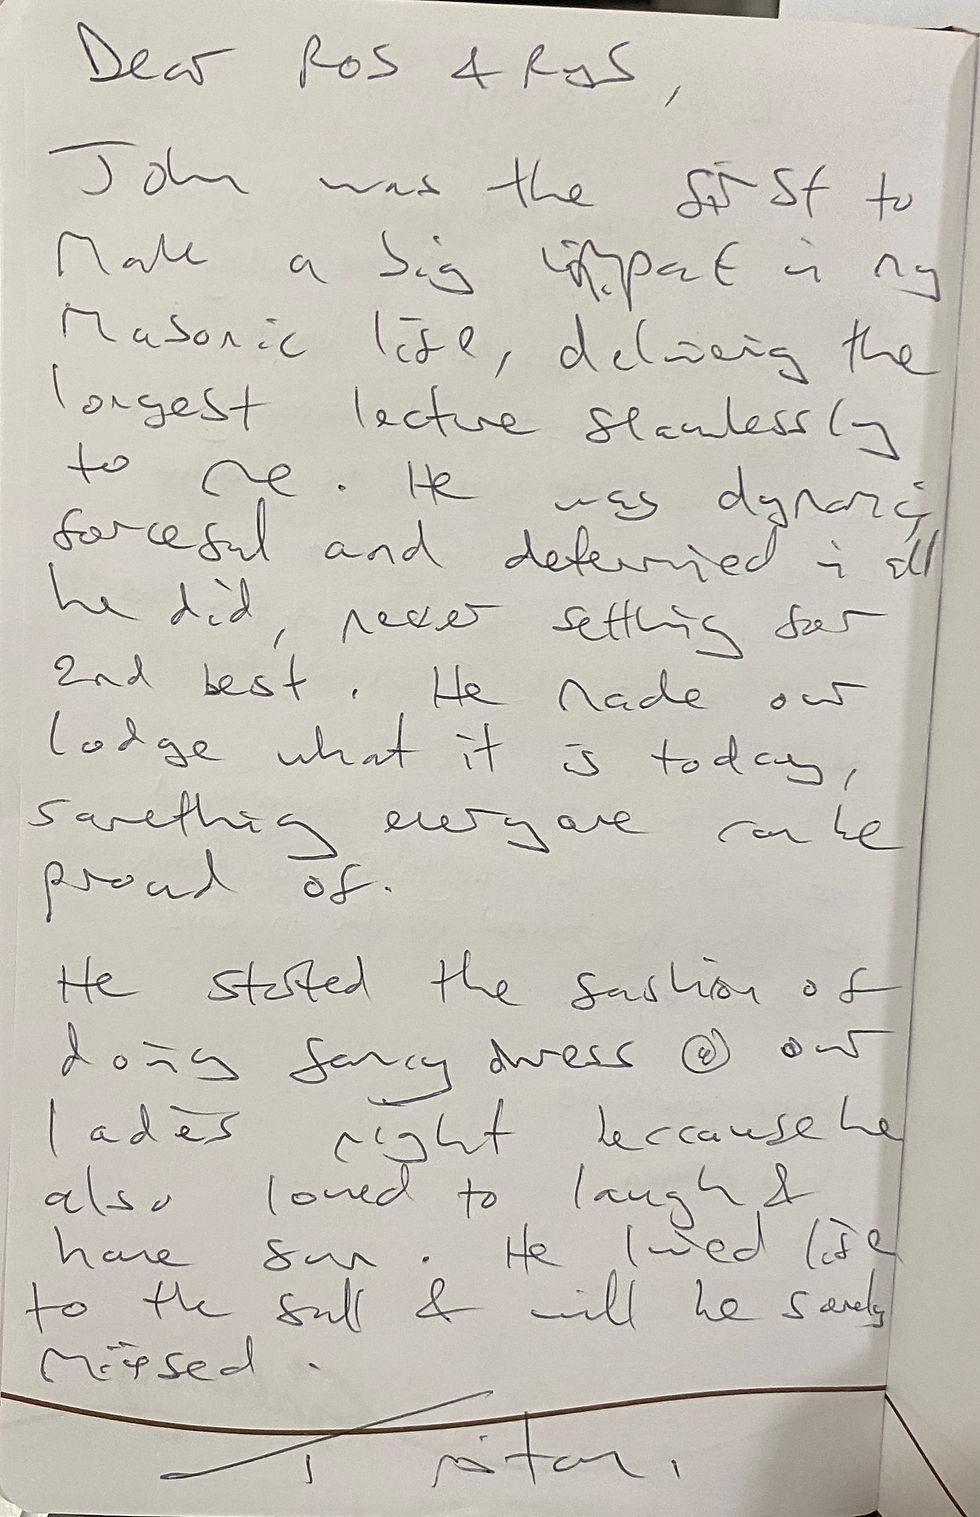 Dear Ros & Rys,
John was the first to
make a big impact in my
Masonic life, delivering the
longest lecture seamlessly
to me. He was dynamic,
forceful and determined in all
he did, never settling for
2nd best. He made our
lodge what it is today,
something everyone can be
proud of.
He started the fashion of
doing fancy dress @ our
ladies night beccause he
also loved to laugh &
have fun. He lived life
to the full & will be sorely
missed.